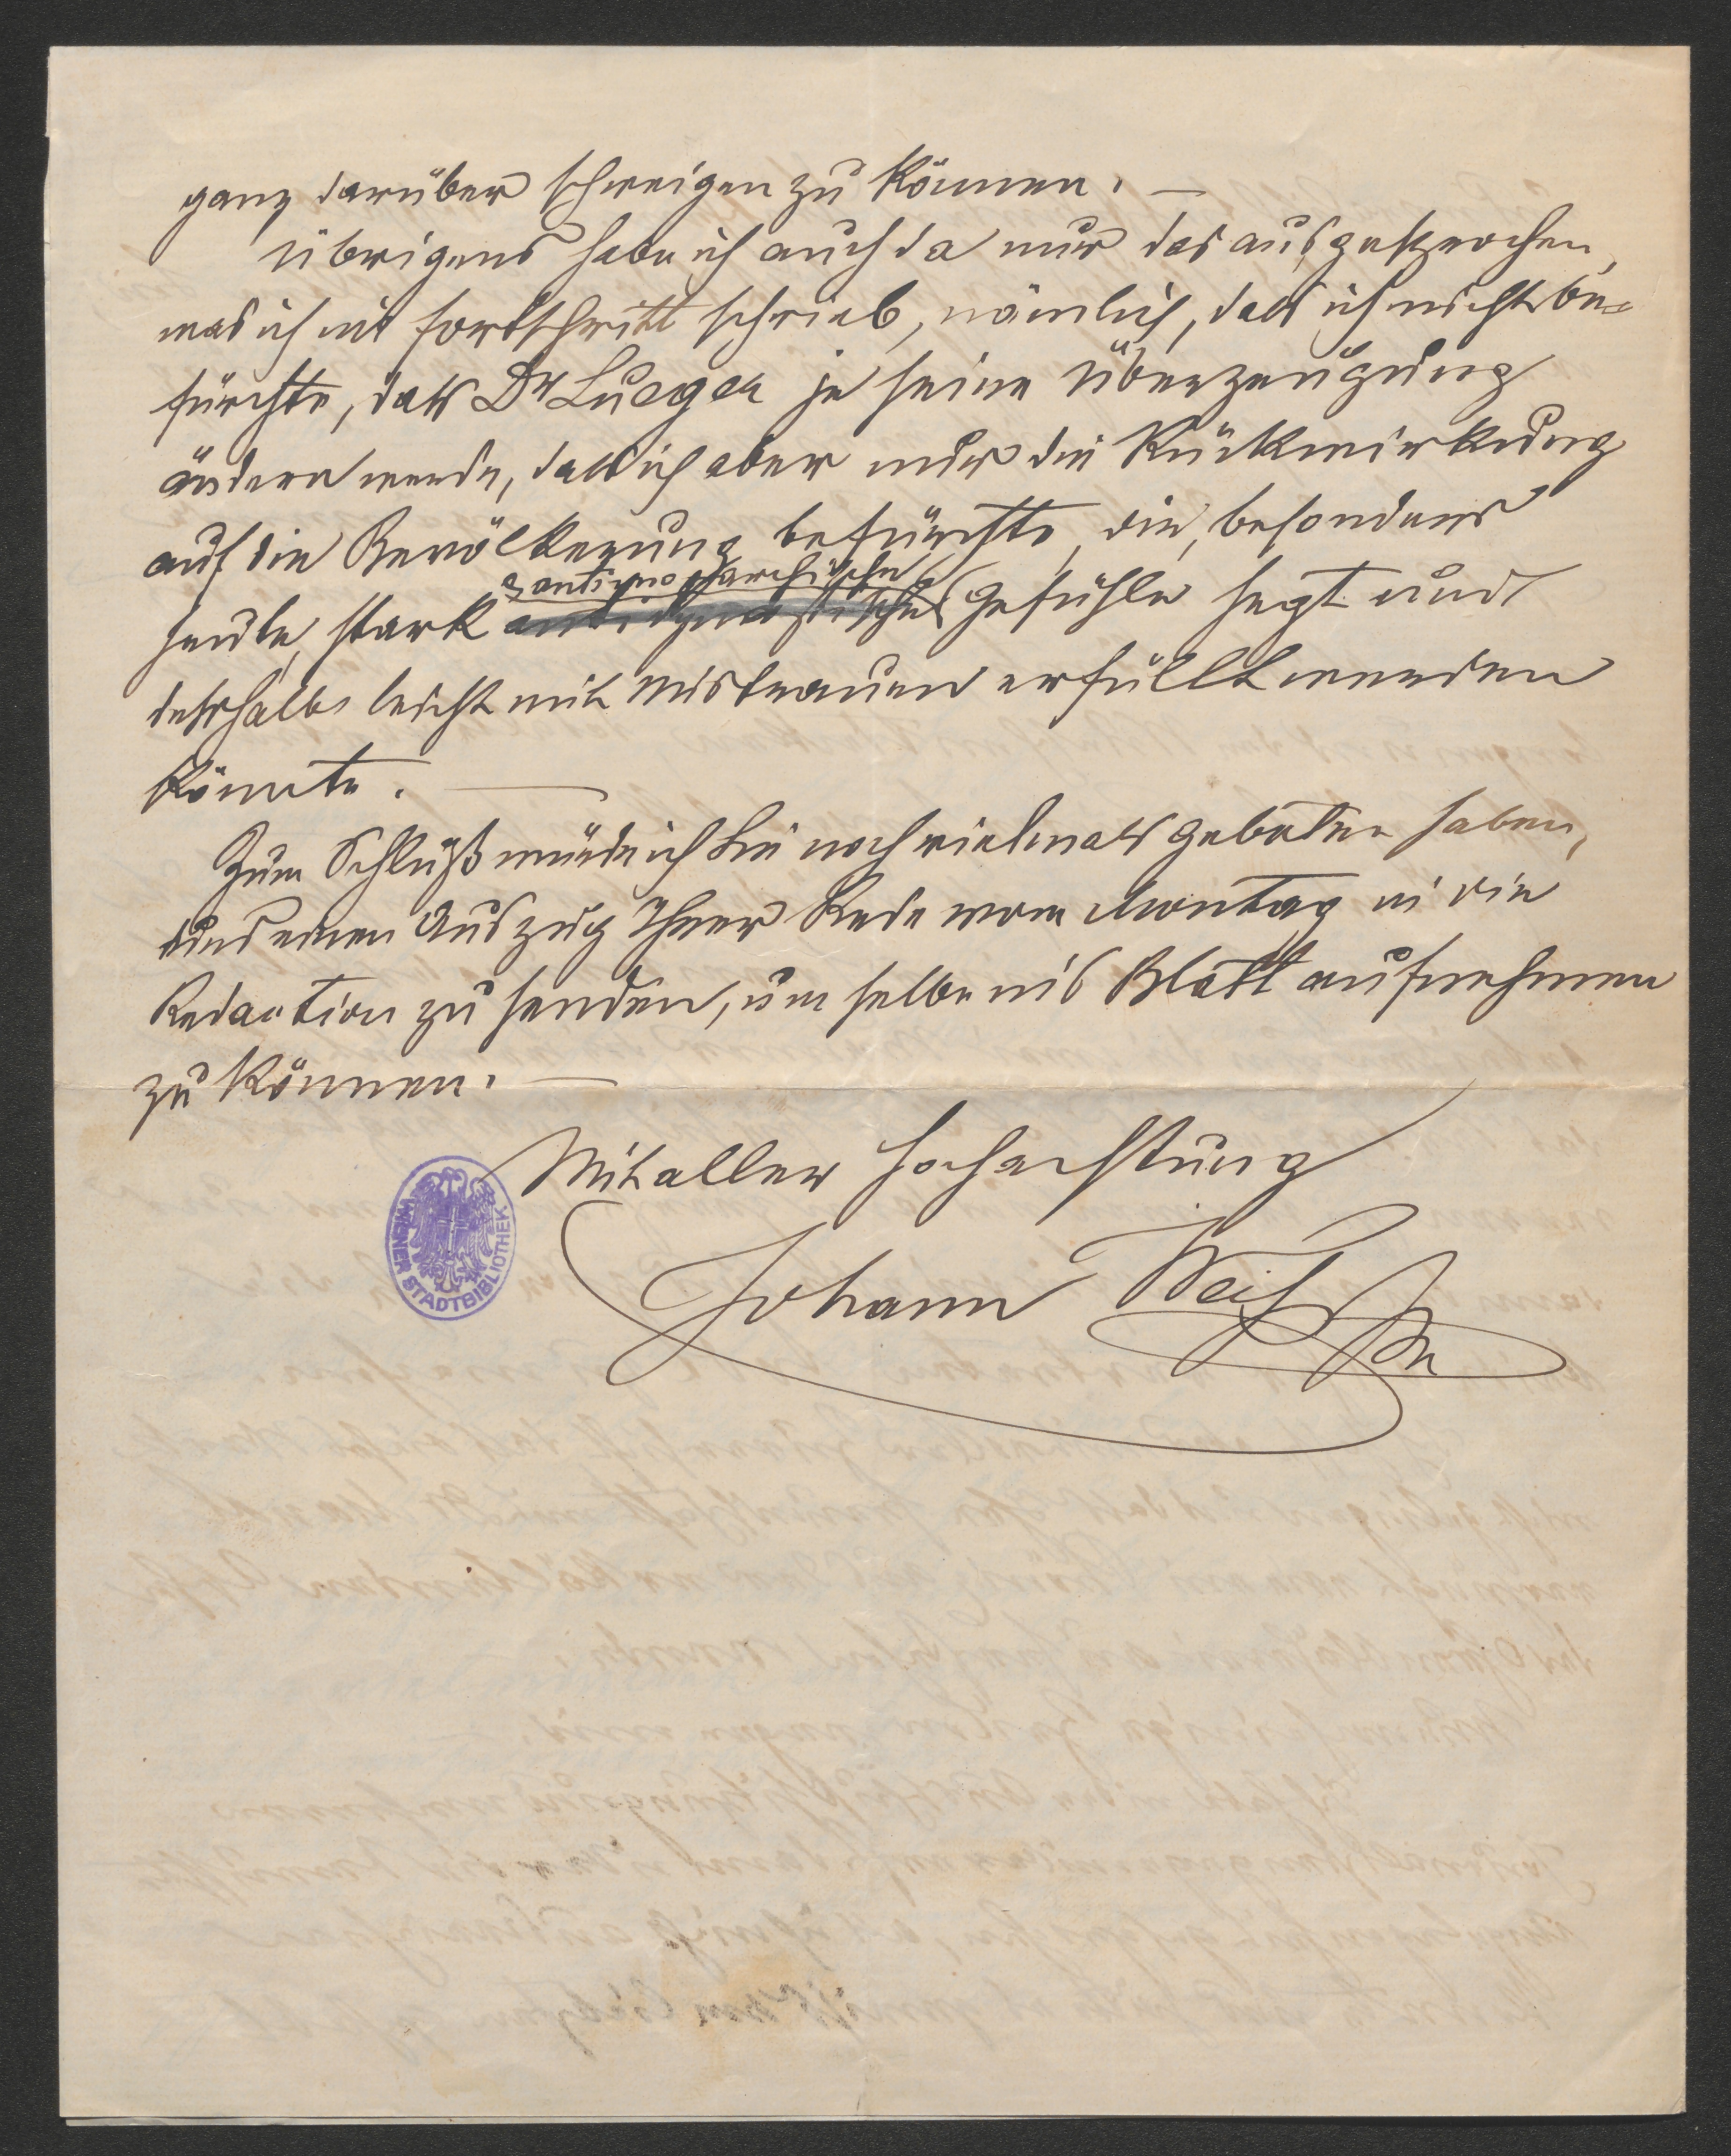 ganz darüber schweigen zu können. —
Übrigens habe ich auch da nur das ausgesprochen,
was ich im Fortschritt schrieb, nämlich, dass ich nicht be=
fürchte, dass Dr Lueger je seine Überzeugung
ändern werde, dass ich aber nur die Rückwirkung
auf die Bevölkerung befürchte, die, besonders
antimonarchische
heute, stark antidynastische Gefühle hegt und
desshalb leicht mit Mistrauen erfüllt werden
könnte. —
Zum Schluß würde ich Sie nochvielmals gebeten haben,
uns einen Auszug Ihrer Rede vom Montag in die
Redaction zu senden, um selbe ins Blatt aufnehmen
zu können. —
Mit aller Hochachtung
Johann Weiß
WIENER STADTBIBLIOTHEK